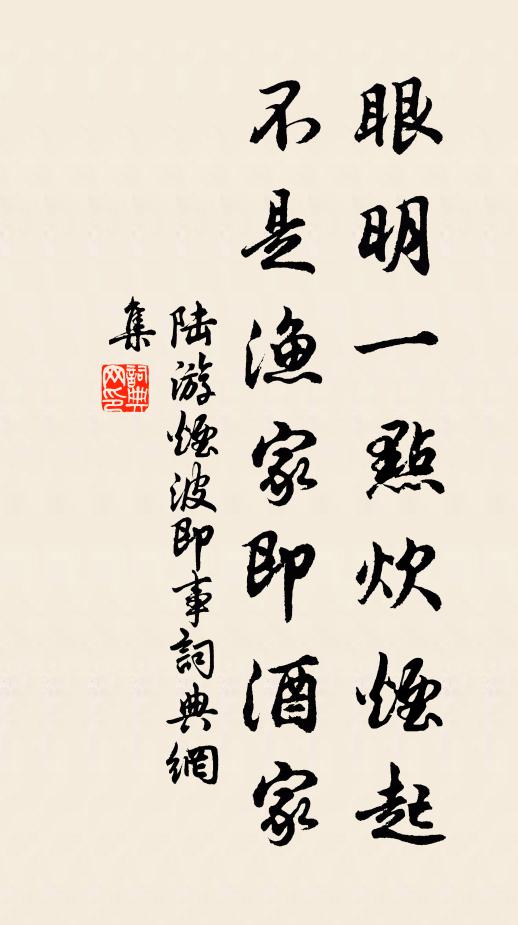 眼明一點炊煙起
不是漁家即酒家
陸游煙波即事詞典網
集
詞典
网印